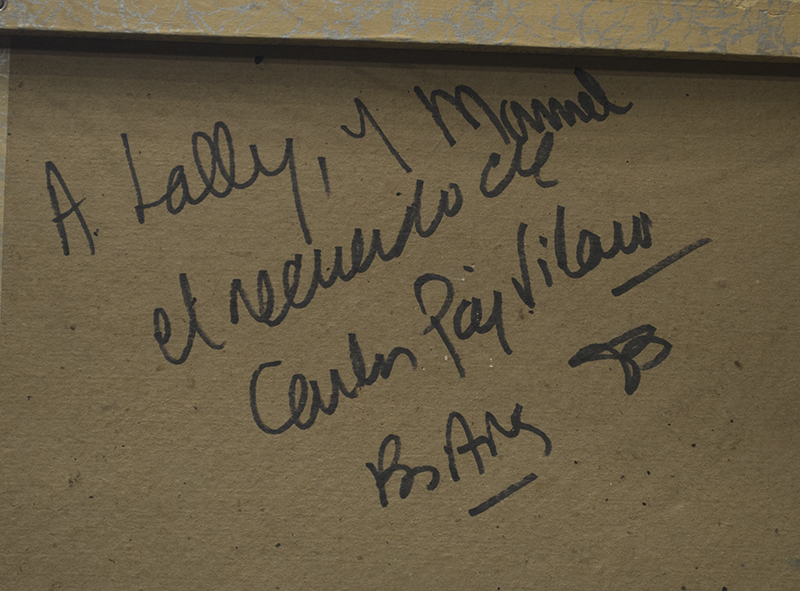 A. Lally, y Manuel
el recuerdo de
Carlos Páez Vilaró
Bs As